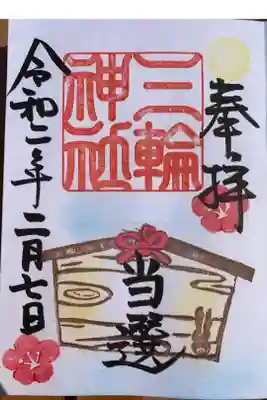 奉拝
三輪
神社
当選
令和二年二月七日